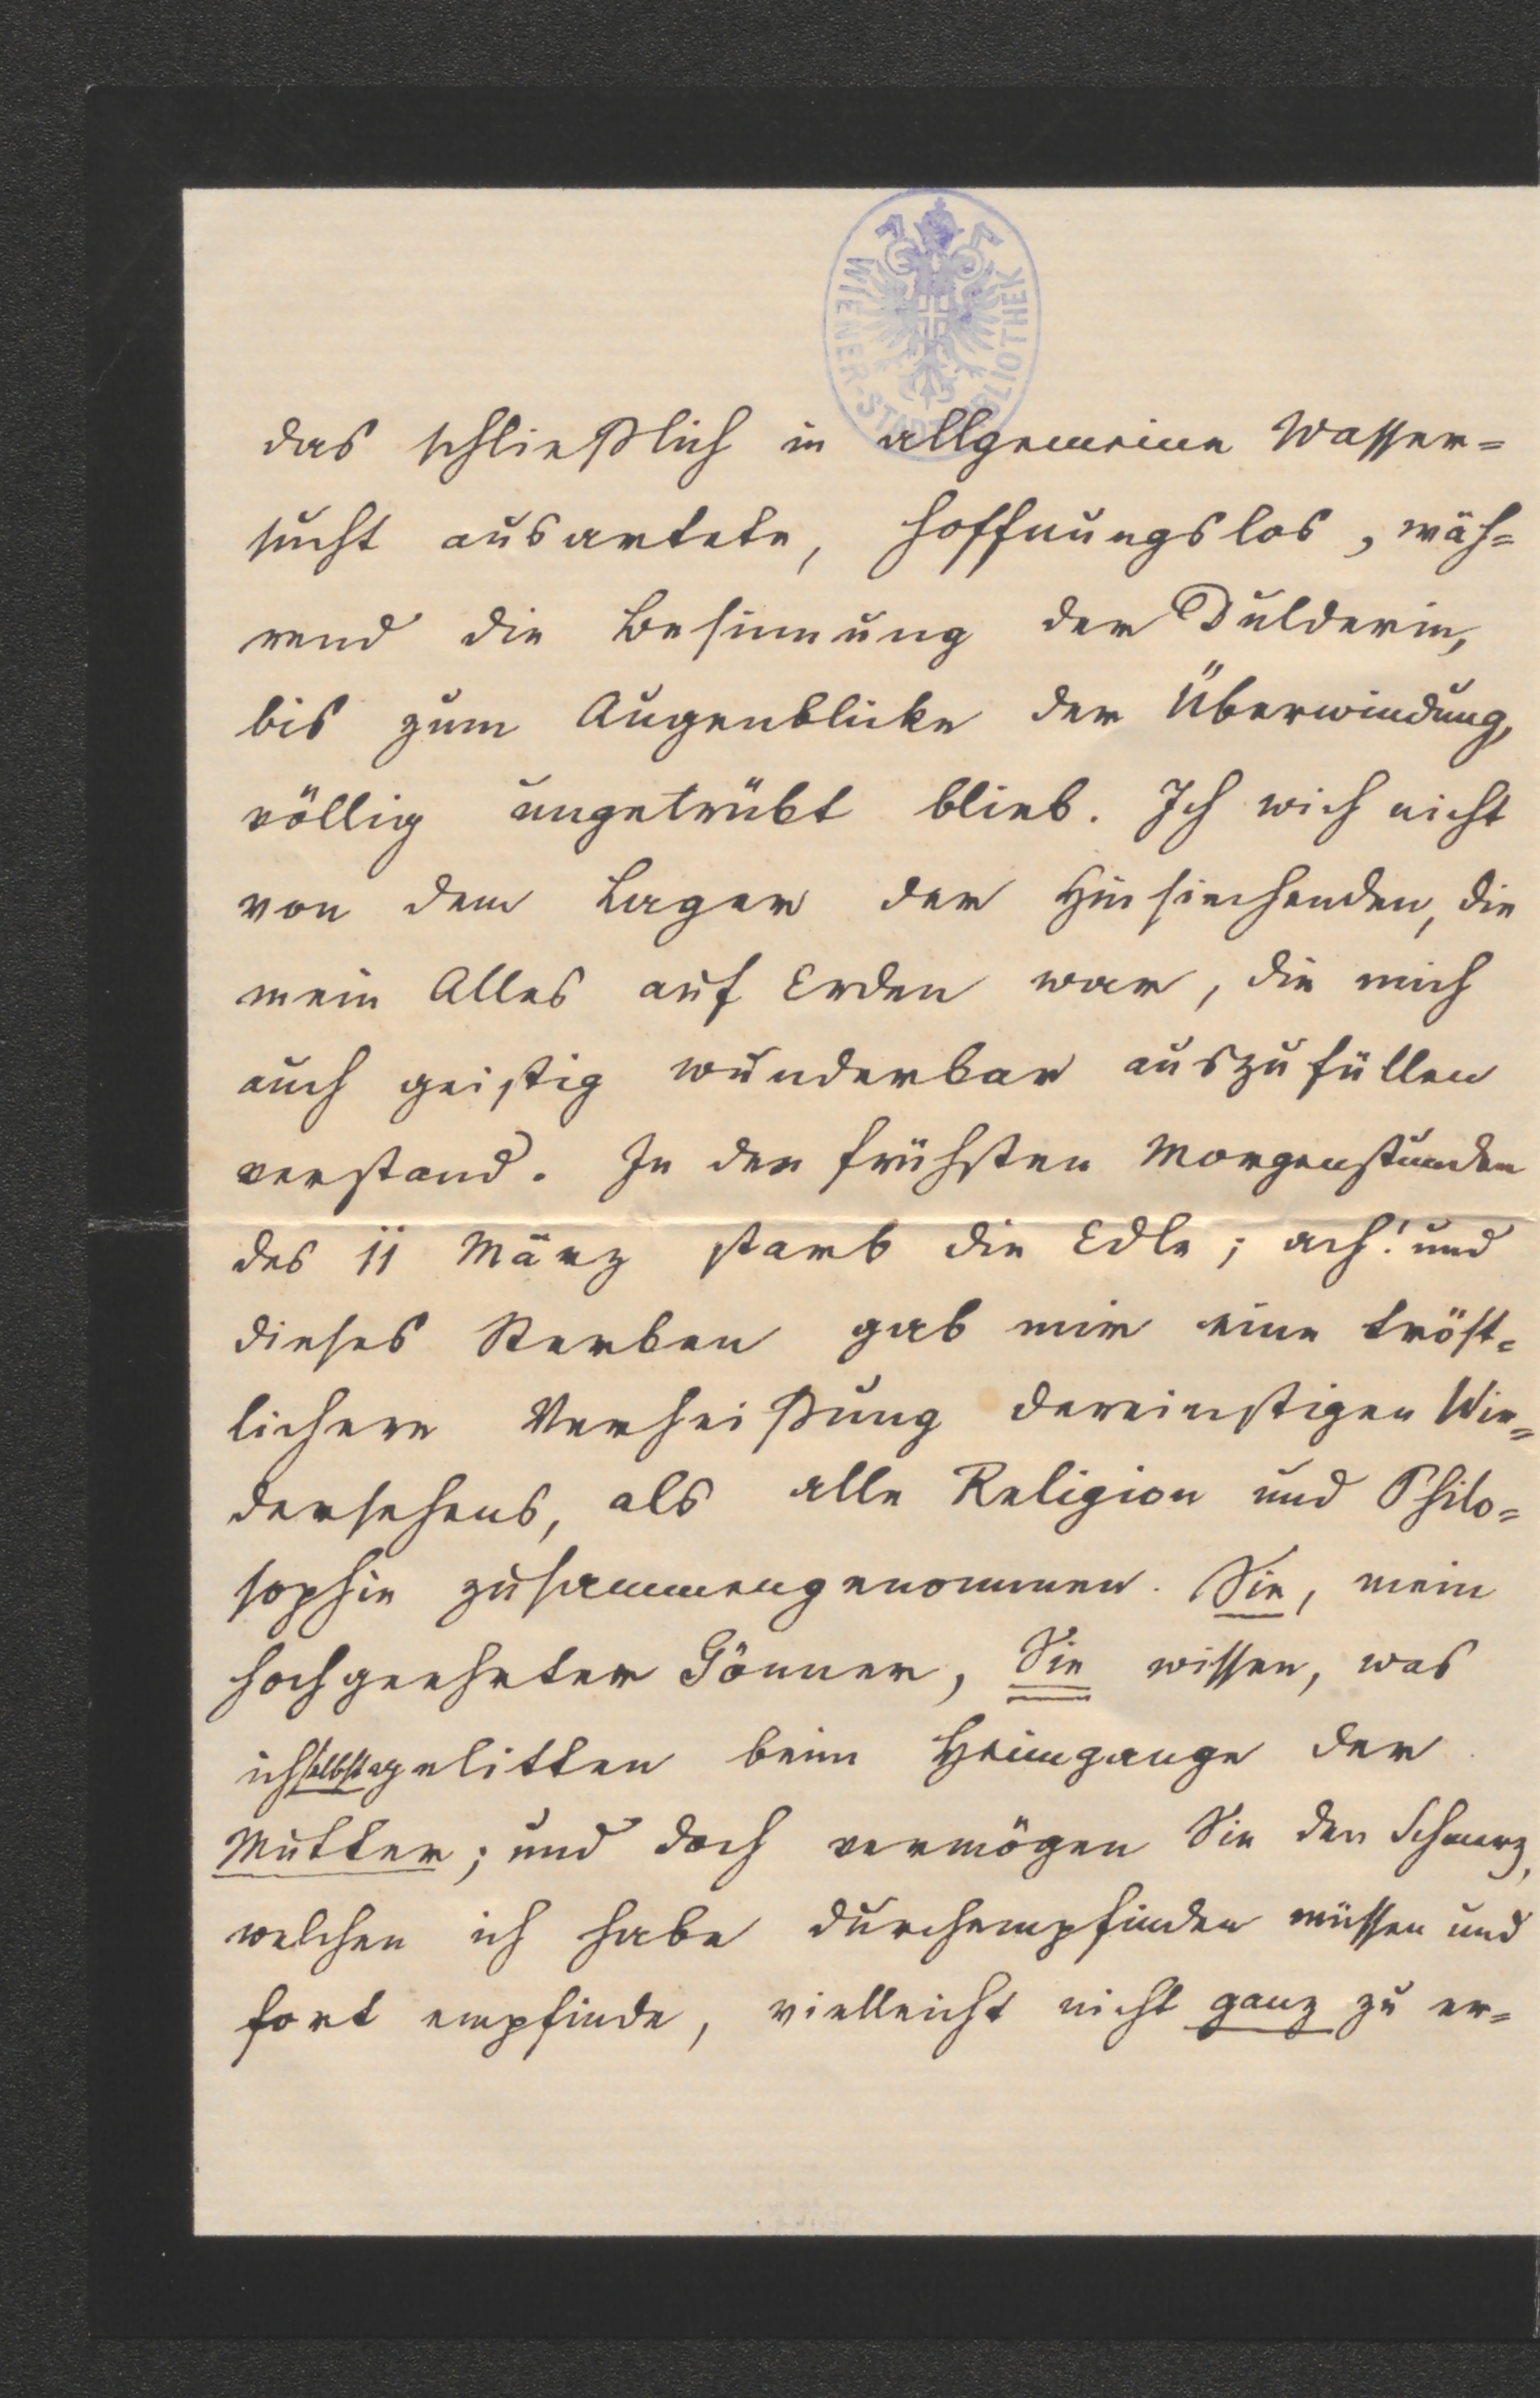 WIENER-STADTBIBLIOTHEK
das schließlich in allgemeine Wasser=
sucht ausartete, hoffnungslos, wäh=
rend die Besinnung der Dulderin,
bis zum Augenblicke der Überwindung,
völlig ungetrübt blieb. Ich wich nicht
von dem Lager der Hinsiechenden, die
mein Alles auf Erden war, die mich
auch geistig wunderbar auszufüllen
verstand. In den frühsten Morgenstunden
des 11 März starb die Edle; ach! und
dieses Sterben gab mir eine tröst=
lichere Verheißung dereinstigen Wie=
dersehens, als alle Religion und Philo=
sophie zusammengenommen. Sie, mein
hochgeehrter Gönner, Sie wissen, was
ich selbst gelitten beim Heimgange der
Mutter; und doch vermögen Sie den Schmerz,
welchen ich habe durchempfinden müssen und
fort empfinde, vielleicht nicht ganz zu er=